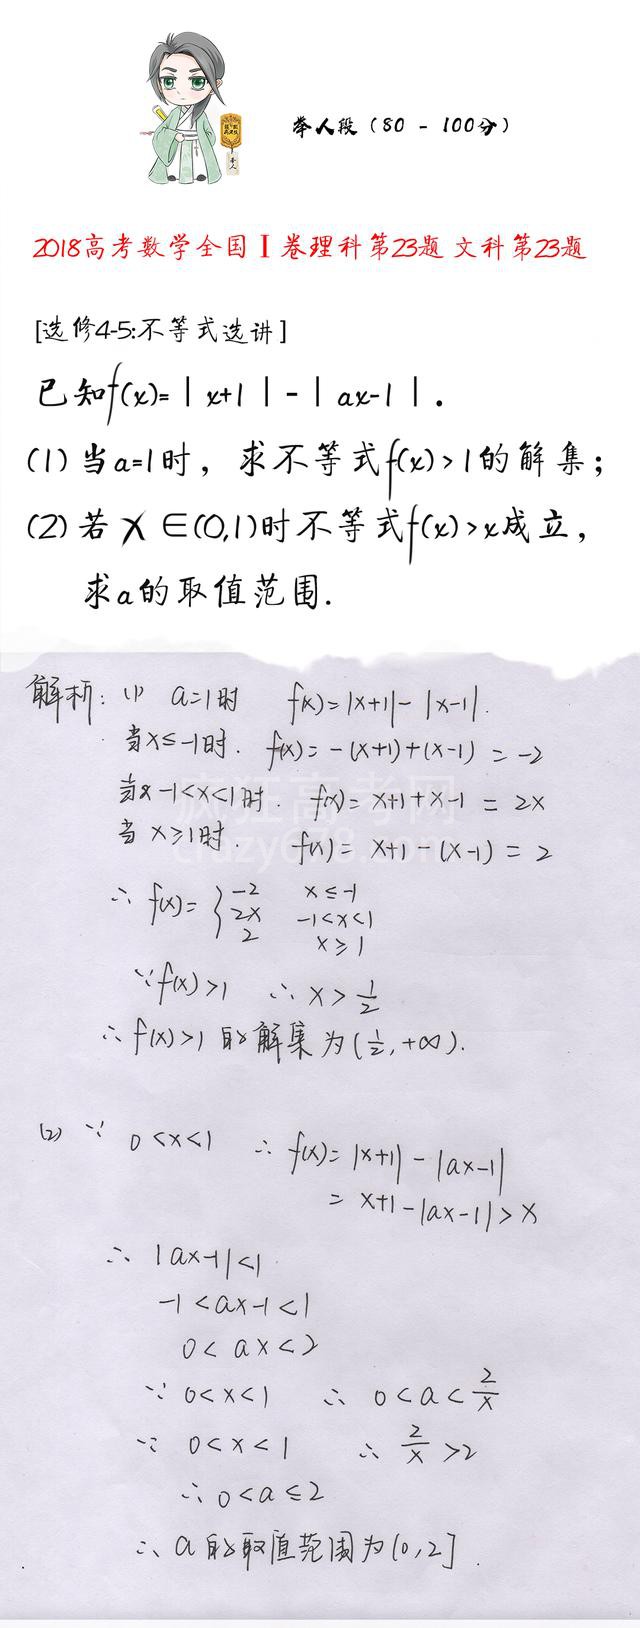 举人段（80 - 100分）
举人
2018高考数学全国Ⅰ卷理科第23题 文科第23题
[选修4-5:不等式选讲]
已知f(x)=|x+1|-|ax-1|.
(1)当a=1时，求不等式f(x)>1的解集；
(2)若x∈(0,1)时不等式f(x)>x成立，
求a的取值范围.
解析: (1) a=1时 f(x)=|x+1|-|x-1|.
当x≤-1时. f(x)=-(x+1)+(x-1)=-2
当x -1<x<1时. f(x)=x+1+x-1=2x
当x≥1时. f(x)=x+1-(x-1)=2
疯狂高考网
crazy678.com
∴ f(x)={-2 x≤-1
2x -1<x<1
2 x≥1
∵f(x)>1 ∴x>1/2
∴f(x)>1的解集为(1/2,+∞).
(2) ∵ 0<x<1 ∴ f(x)=|x+1|-|ax-1|
=x+1-|ax-1|>x
∴ |ax-1|<1
-1<ax-1<1
0<ax<2
∵ 0<x<1 ∴ 0<a<2/x
∵ 0<x<1 ∴ 2/x>2
∴0<a≤2
∴a的取值范围为(0,2].